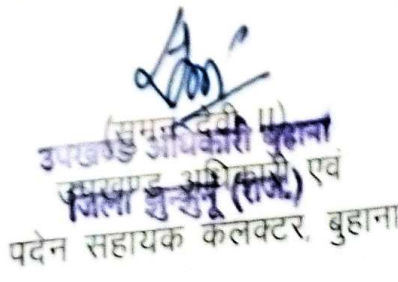 (सुमन देवी II)
उपखण्ड अधिकारी बुहाना
उपखण्ड अधिकारी एवं
जिला झुन्झुनू (राज.)
पदेन सहायक कलक्टर, बुहाना